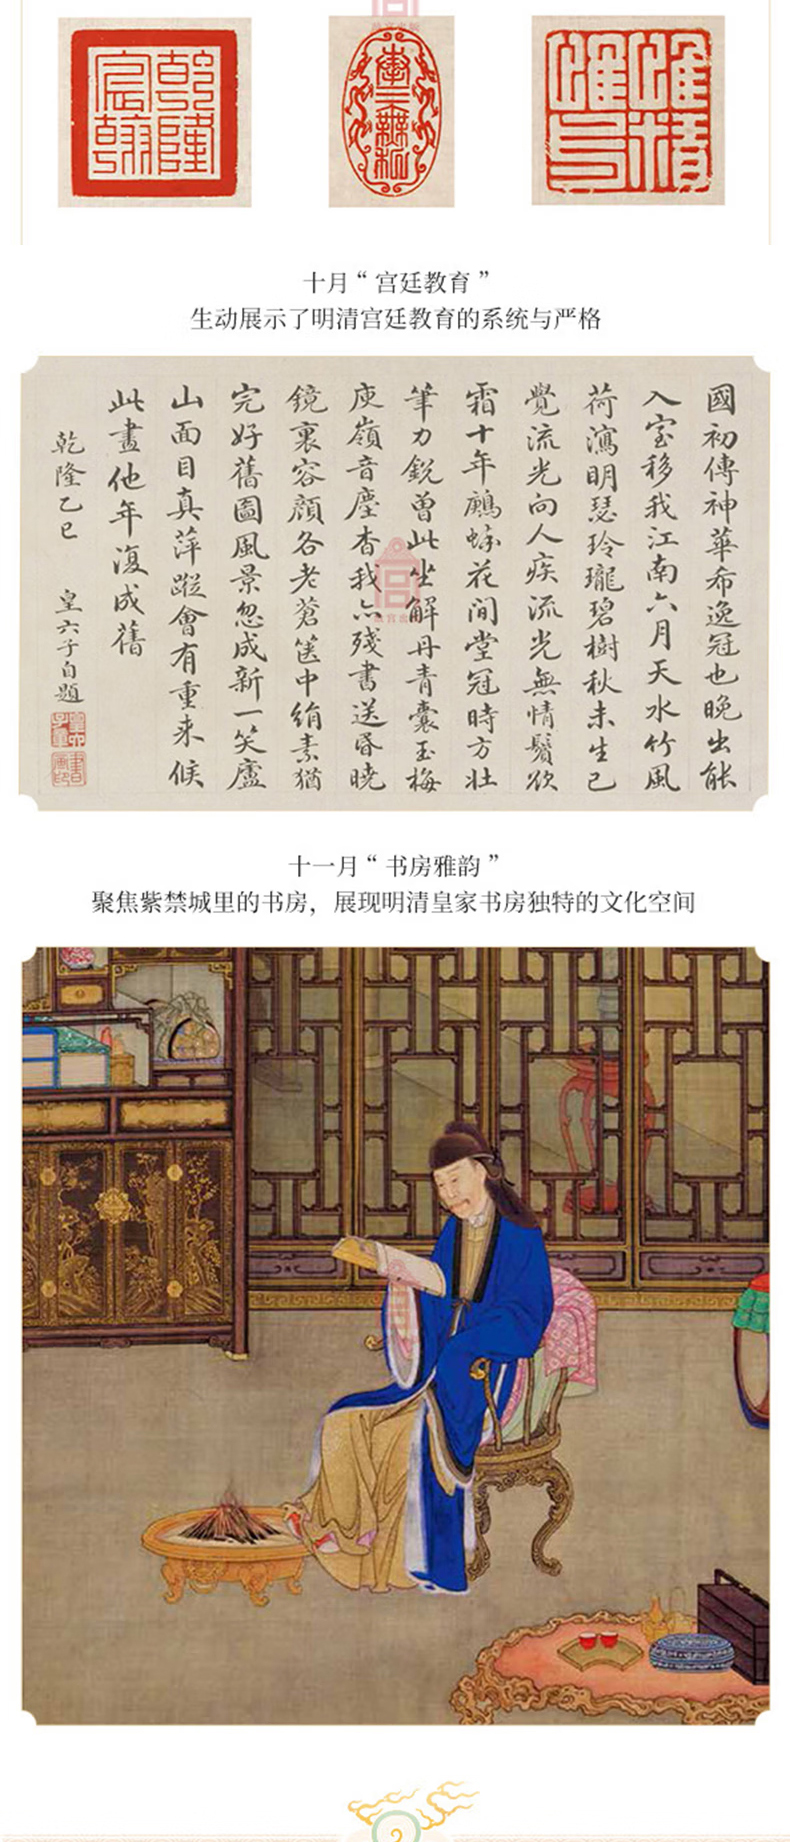 乾隆
宸翰
奉三無私
惟精
惟一
十月“ 宫廷教育 ”
生动展示了明清宫廷教育的系统与严格
國初傳神華希逸冠也晚出能
入室移我江南六月天水竹風
荷瀉明瑟玲瓏碧樹秋未生已
覺流光向人疾流光無情鬢欲
霜十年鷓鴣花間堂冠時方壯
筆力銳曾此坐解丹青囊玉梅
庾嶺音塵杳我亦殘書送昏曉
鏡裏容顔各老蒼篋中絹素猶
完好舊圖風景忽成新一笑廬
山面目真萍蹤會有重來候
此畫他年復成舊
乾隆乙巳 皇六子自題
十一月“ 书房雅韵 ”
聚焦紫禁城里的书房，展现明清皇家书房独特的文化空间
2